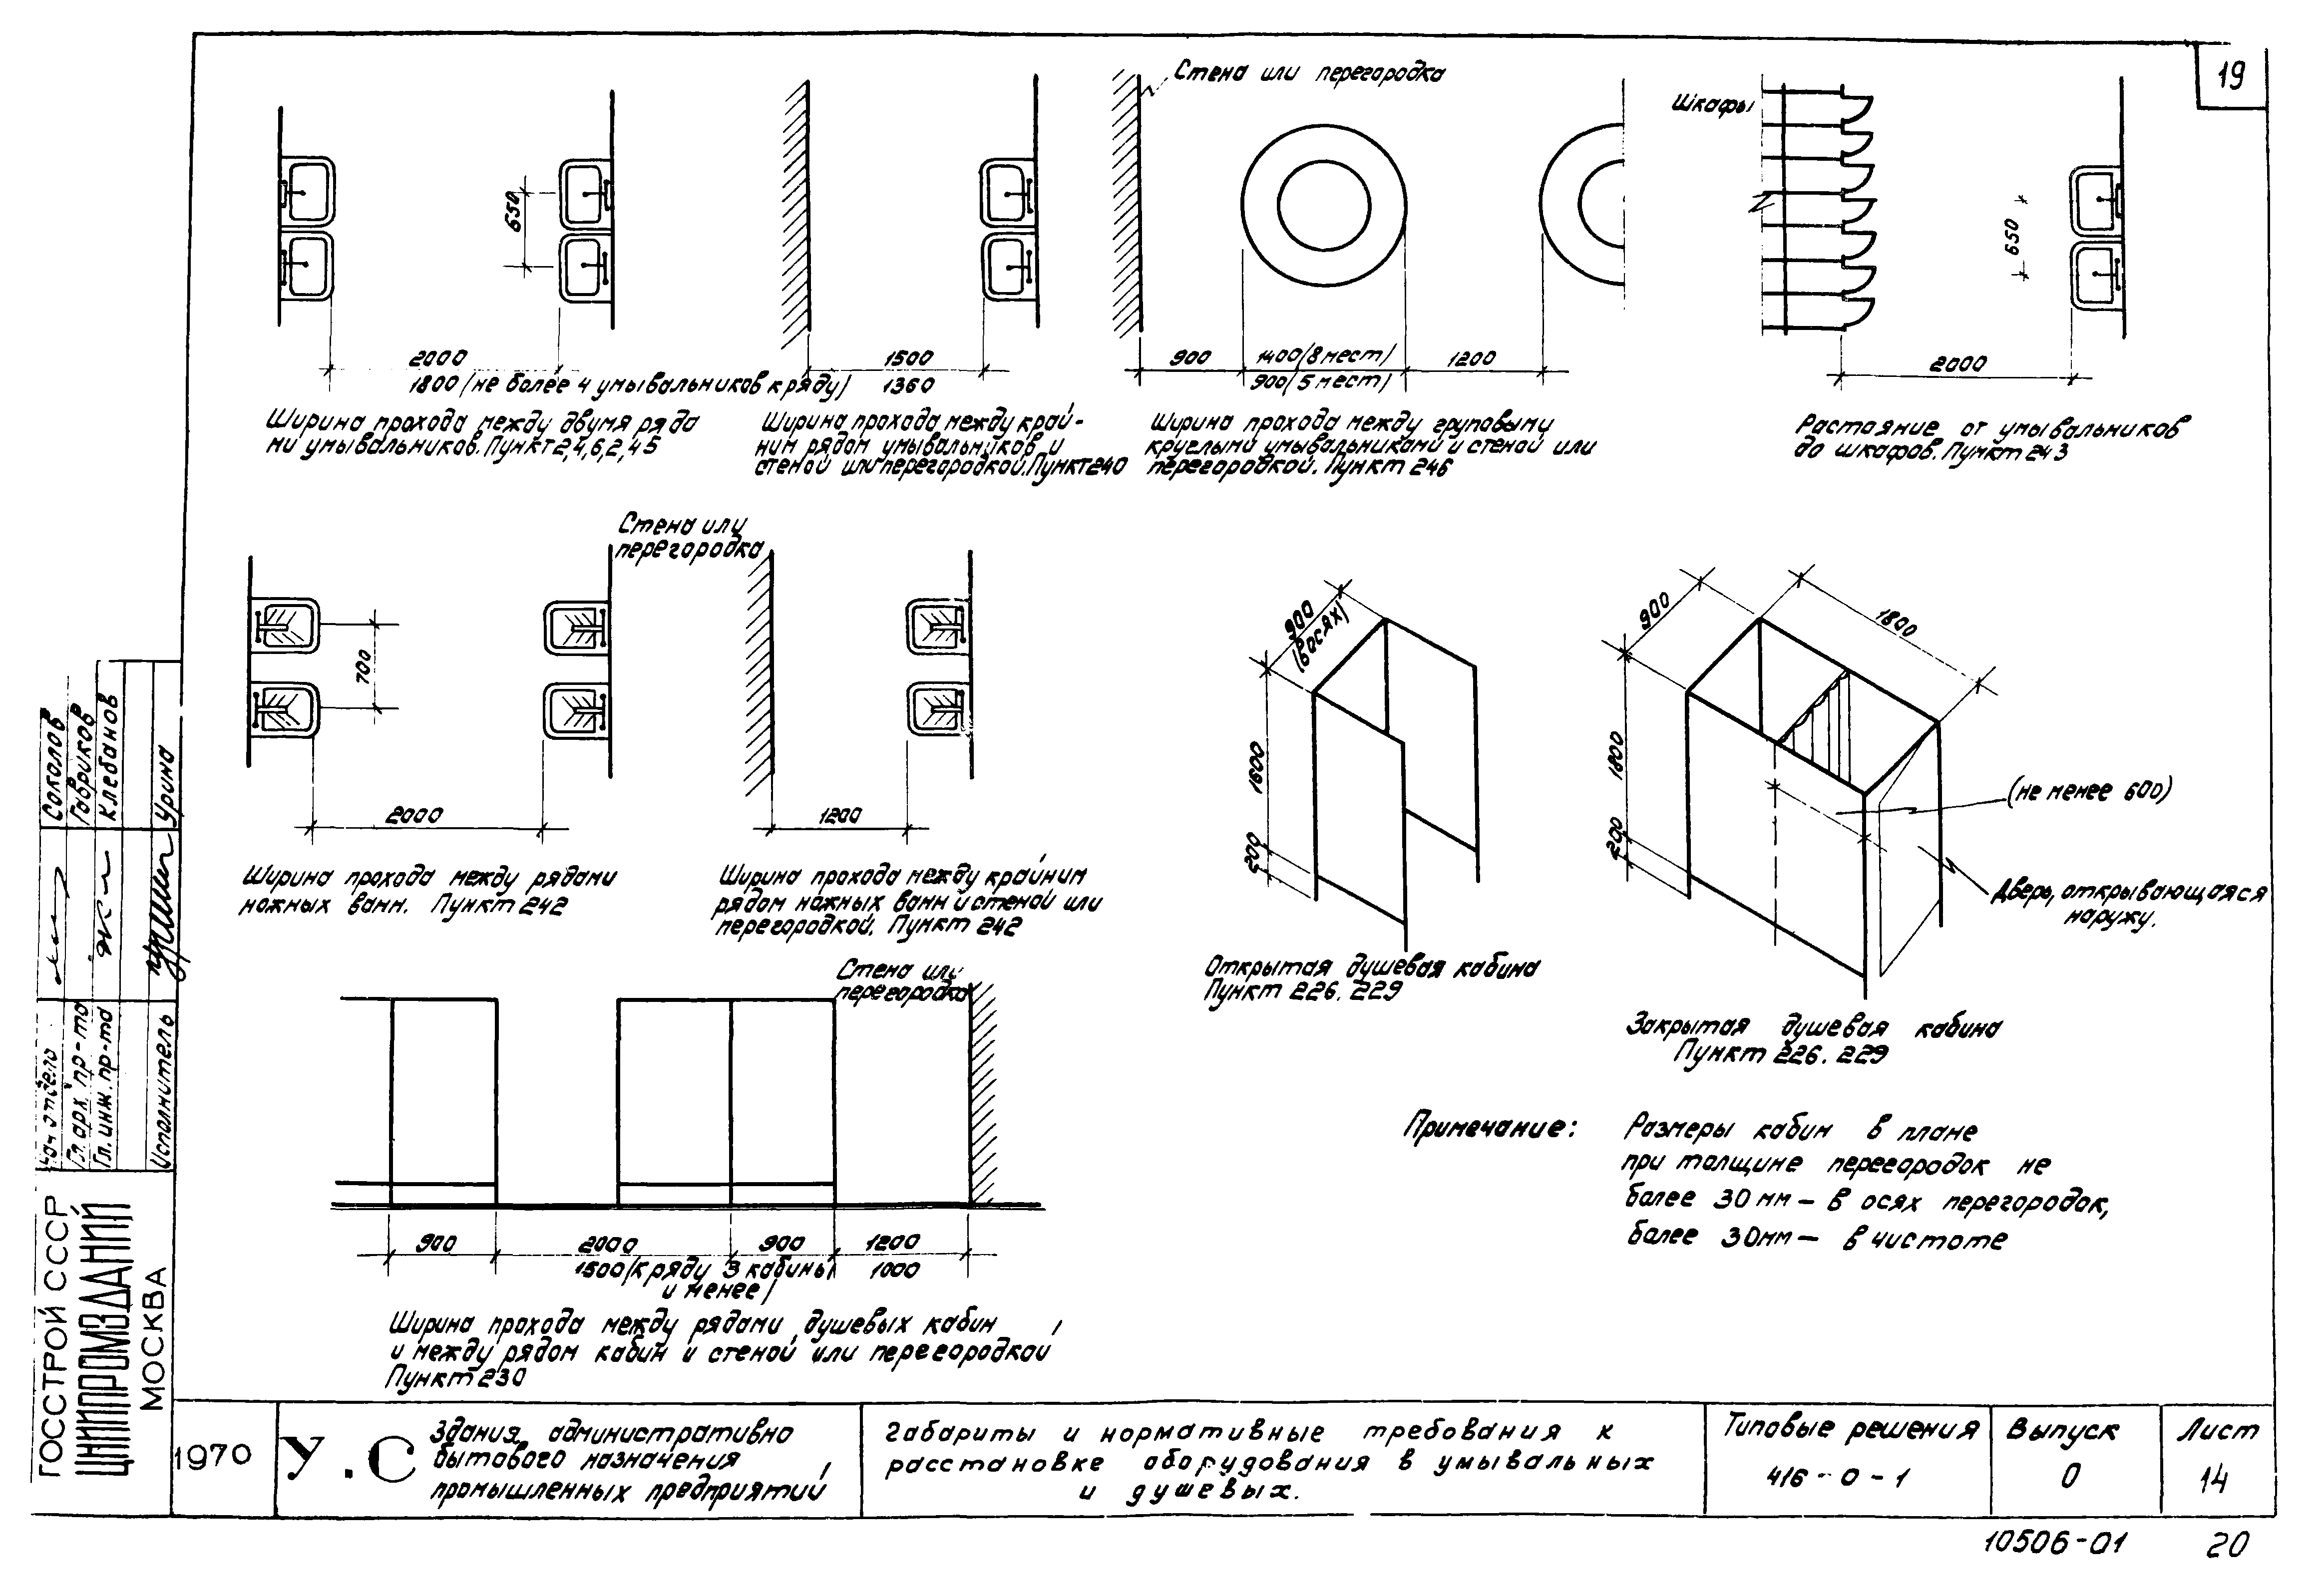 19
Стена или перегородка
Шкафы
650
650
2000
1800 (не более 4 умывальников к ряду)
1500
1360
900
1400 (8 мест)
900 (5 мест)
1200
2000
Ширина прохода между двумя ряда
ми умывальников. Пункт 2,4,6,2,45
Ширина прохода между край-
ним рядом умывальников и
стеной или перегородкой. Пункт 240
Ширина прохода между груповыми
круглыми умывальниками и стеной или
перегородкой. Пункт 246
Растояние от умывальников
до шкафов. Пункт 243
Стена или
перегородка
700
2000
1200
Ширина прохода между рядами
ножных ванн. Пункт 242
Ширина прохода между крайним
рядом ножных ванн и стеной или
перегородкой. Пункт 242
900
(в осях)
1600
200
Открытая душевая кабина
Пункт 226. 229
900
1800
1800
200
(не менее 600)
Дверь, открывающаяся
наружу.
Закрытая душевая кабина
Пункт 226. 229
Стена или
перегородка
900
2000
900
1200
1500 (к ряду 3 кабины
и менее)
1000
Ширина прохода между рядами душевых кабин
и между рядом кабин и стеной или перегородкой
Пункт 230
Примечание: Размеры кабин в плане
при толщине перегородок не
более 30 мм – в осях перегородок,
более 30мм – в чистоте
Соколов
Гавриков
Клебанов
Урина
Нач отдела
Гл. арх. пр-та
Гл. инж. пр-та
Исполнитель
ГОССТРОЙ СССР
ЦНИИПРОМЗДАНИЙ
МОСКВА
1970
У.С
Здания административно
бытового назначения
промышленных предприятий
Габариты и нормативные требования к
расстановке оборудования в умывальных
и душевых.
Типовые решения
416-0-1
Выпуск
0
Лист
14
10506-01
20